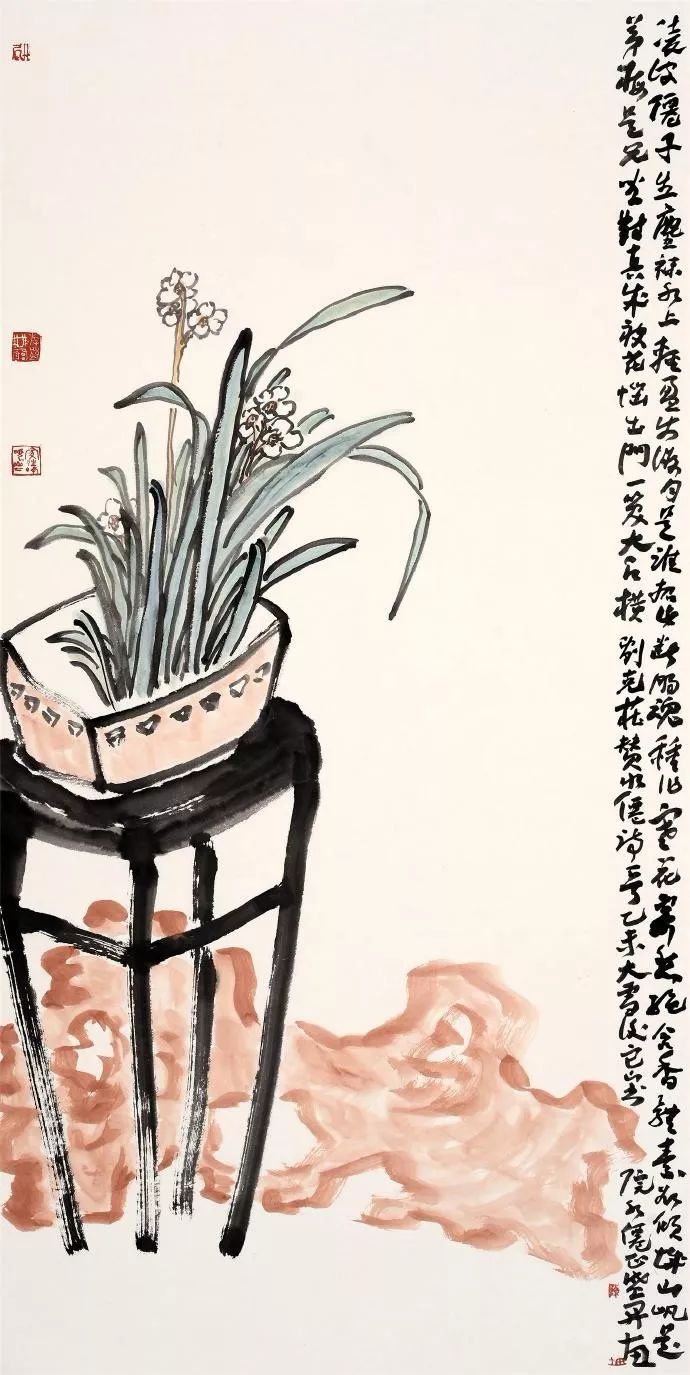 凌波僊子生塵襪水上輕盈步微月是誰招此斷腸魂種作寒花寄愁絕含香體素欲傾城山矾是
弟梅是兄坐對真成被花惱出門一笑大江橫 劉克莊贊水僊詩意乙未大雪後 院水僊正盛開